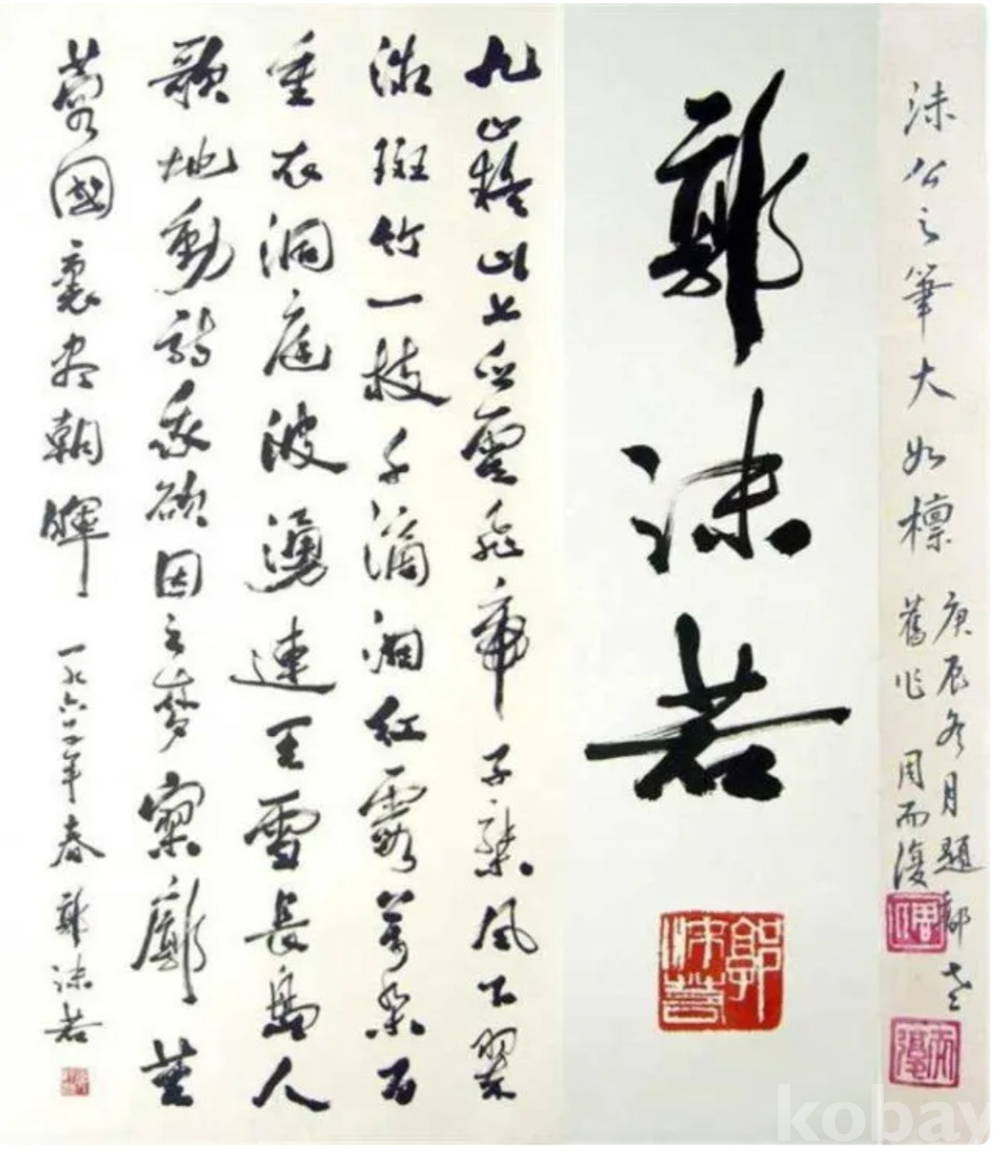 沫公之筆大如檩
庚辰冬月題郭老
舊作 周而復
郭沫若
郭沫若
九嶷山上白雲飛帝子乘風下翠
微斑竹一枝千滴泪紅霞萬朵百
重衣洞庭波湧連天雪長島人
歌地動詩我欲因之夢寥廓芙
蓉國裏盡朝暉 一九六二年春 郭沫若
kobay